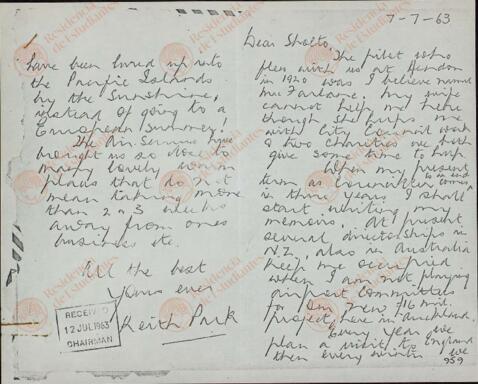 7-7-63
Dear Sholto,
The pilot who
flew with us at Hendon
in 1920 was I believe named
McFarlane. My wife
cannot help me here
though she helps me
with City Council work
& two charities we both
give some time to help.
When my present
term as Councillor is an end
in three years I shall
start writing my
memoirs. At present
several directorships in
N.Z. also in Australia
keep me occupied
when I am not playing
airport Committees
for our new £6 mil.
project here in Auckland.
Every year we
plan a visit to England
then every winter we
959
have been lured up into
the Pacific Islands
by the Sunshine,
instead of going to a
European Summer!
The Air Services have
brought us so close to
many lovely warm
places that do not
mean taking more
than 2 or 3 weeks
away from ones
business etc.
All the best
Yours ever
Keith Park
RECEIVED
12 JUL 1963
CHAIRMAN
Residencia
de Estudiantes